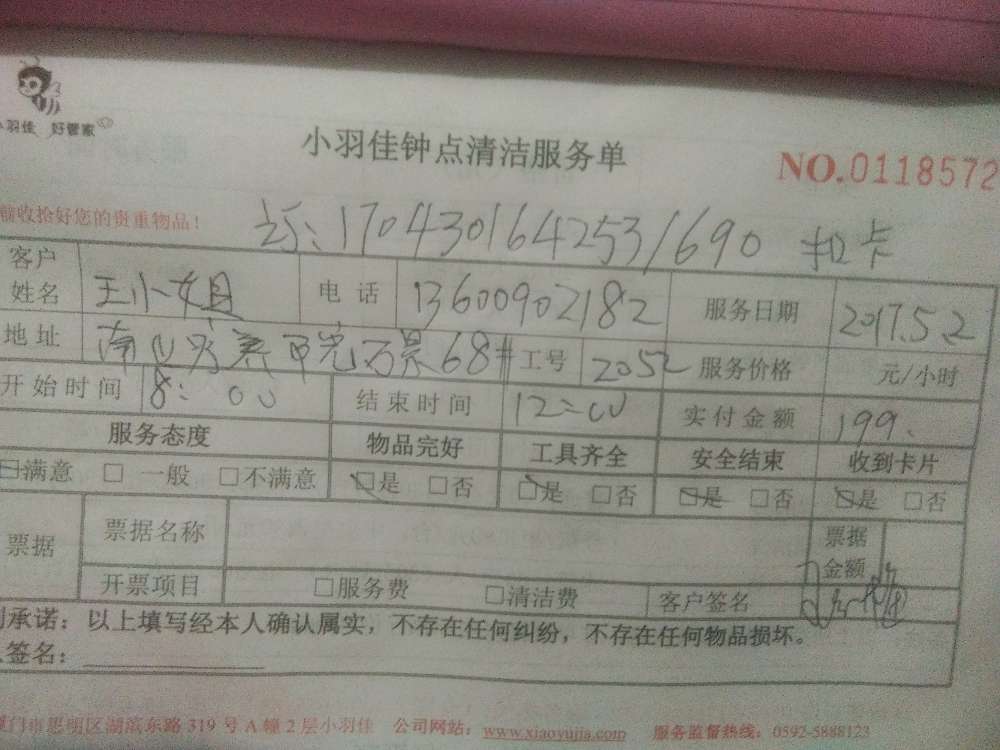 小羽佳 好管家
小羽佳钟点清洁服务单
NO.0118572
前收拾好您的贵重物品！
1704301642531690 扣卡
客户姓名 王小姐 电话 13600902182 服务日期 2017.5.2
地址 68# 工号 2052 服务价格 元/小时
开始时间 8:00 结束时间 12:00 实付金额 199.
服务态度 物品完好 工具齐全 安全结束 收到卡片
□满意 □一般 □不满意 □是 □否 □是 □否 □是 □否 □是 □否
票据 票据名称 票据金额
开票项目 □服务费 □清洁费 客户签名
承诺：以上填写经本人确认属实，不存在任何纠纷，不存在任何物品损坏。
签名：
厦门市思明区湖滨东路 319 号 A 幢 2 层小羽佳 公司网站：www.xiaoyujia.com 服务监督热线：0592-5888123